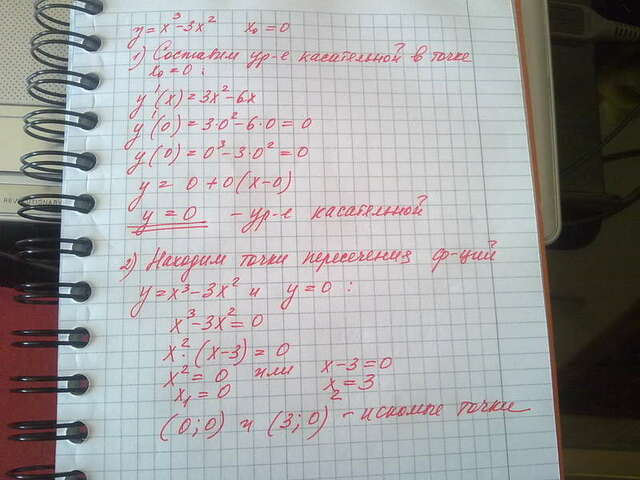 y = x³-3x² x₀ = 0
1) Составим ур-е касательной в точке
x₀ = 0 :
y'(x) = 3x²-6x
y'(0) = 3·0²-6·0 = 0
y(0) = 0³-3·0² = 0
y = 0+0(x-0)
y = 0 - ур-е касательной
2) Находим точки пересечения ф-ций
y = x³-3x² и y = 0 :
x³-3x² = 0
x²·(x-3) = 0
x² = 0 или x-3 = 0
x₁ = 0 x₂ = 3
(0;0) и (3;0) - искомые точки
REVOLUTIONARY